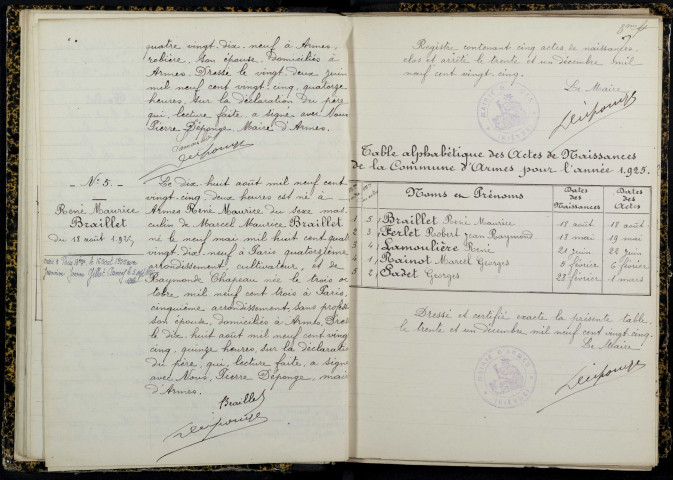 quatre vingt-dix-neuf à Armes,
son épouse, domiciliés à
Armes. Dressé le vingt-deux juin
mil neuf cent vingt-cinq, quatorze
heures, sur la déclaration du père
qui, lecture faite, a signé avec Nous
Pierre Déponge, Maire d'Armes.
Lamoulière
Déponge
N° 5.
René Maurice
Braillet
du 18 août 1925
Le dix huit août mil neuf cent
vingt-cinq, deux heures est né à
Armes René Maurice du sexe mas
culin de Marcel Maurice Braillet
né le neuf mai mil huit cent qua
vingt-dix neuf à Paris quatorzième
arrondissement, cultivateur, et de
Raymonde Chapeau née le trois oc
tobre mil neuf cent trois à Paris,
cinquième arrondissement, sans profess
son épouse, domiciliés à Armes. Dressé
le dix huit août mil neuf cent vingt
cinq, quinze heures sur la déclaration
du père, qui, lecture faite, a signé
avec Nous, Pierre Déponge, maire
d'Armes.
Braillet
Déponge
Registre contenant cinq actes de naissances,
clos et arrêté le trente et un décembre mil
neuf cent vingt-cinq.
Le Maire
Déponge
MAIRIE D'ARMES
(NIÈVRE)
Table alphabétique des Actes de Naissances
de la Commune d'Armes pour l'année 1925.
Noms et Prénoms Dates des Naissances Dates des Actes
1 5 Braillet René Maurice 18 août 18 août
2 3 Ferlet Robert Jean Raymond 18 mai 19 mai
3 4 Lamoulière René 21 juin 22 juin
4 1 Rainot Marcel Georges 5 février 6 février
5 2 Sadet Georges 28 février 1 mars
Dressé et certifié exacte la présente table,
le trente et un décembre mil neuf cent vingt-cinq.
Le Maire
MAIRIE D'ARMES
(NIÈVRE)
Déponge